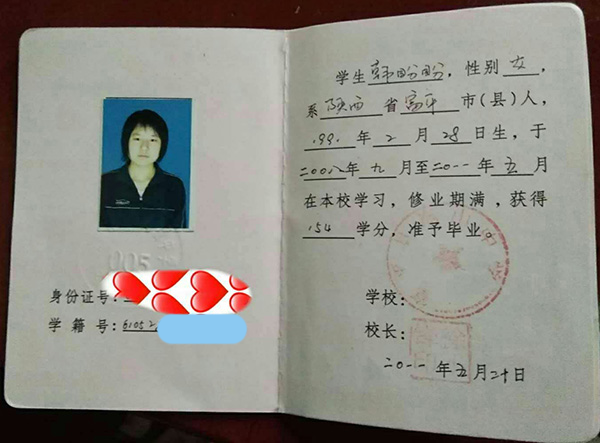 身份证号:
学籍号: 61052
学生韩盼盼,性别女,
系陕西省富平市(县)人,
1991年2月28日生,于
二00八年九月至二0一一年五月
在本校学习,修业期满,获得
154学分,准予毕业。
学校:
校长:
二0一一年五月二十日